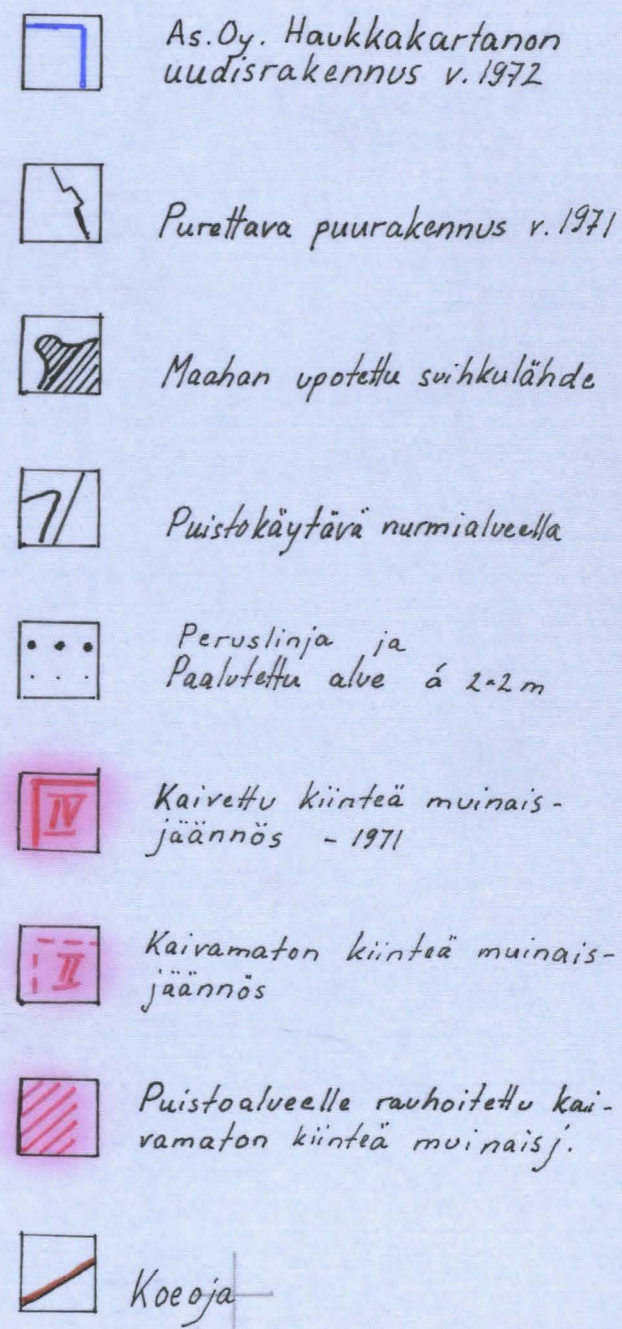 As. Oy. Haukkakartanon
uudisrakennus v. 1972
Purettava puurakennus v. 1971
Maahan upotettu suihkulähde
Puistokäytävä nurmialueella
Peruslinja ja
Paalutettu alue á 2×2 m
IV
Kaivettu kiinteä muinais-
jäännös - 1971
II
Kaivamaton kiinteä muinais-
jäännös
Puistoalueelle rauhoitettu kai-
vamaton kiinteä muinaisj.
Koeoja